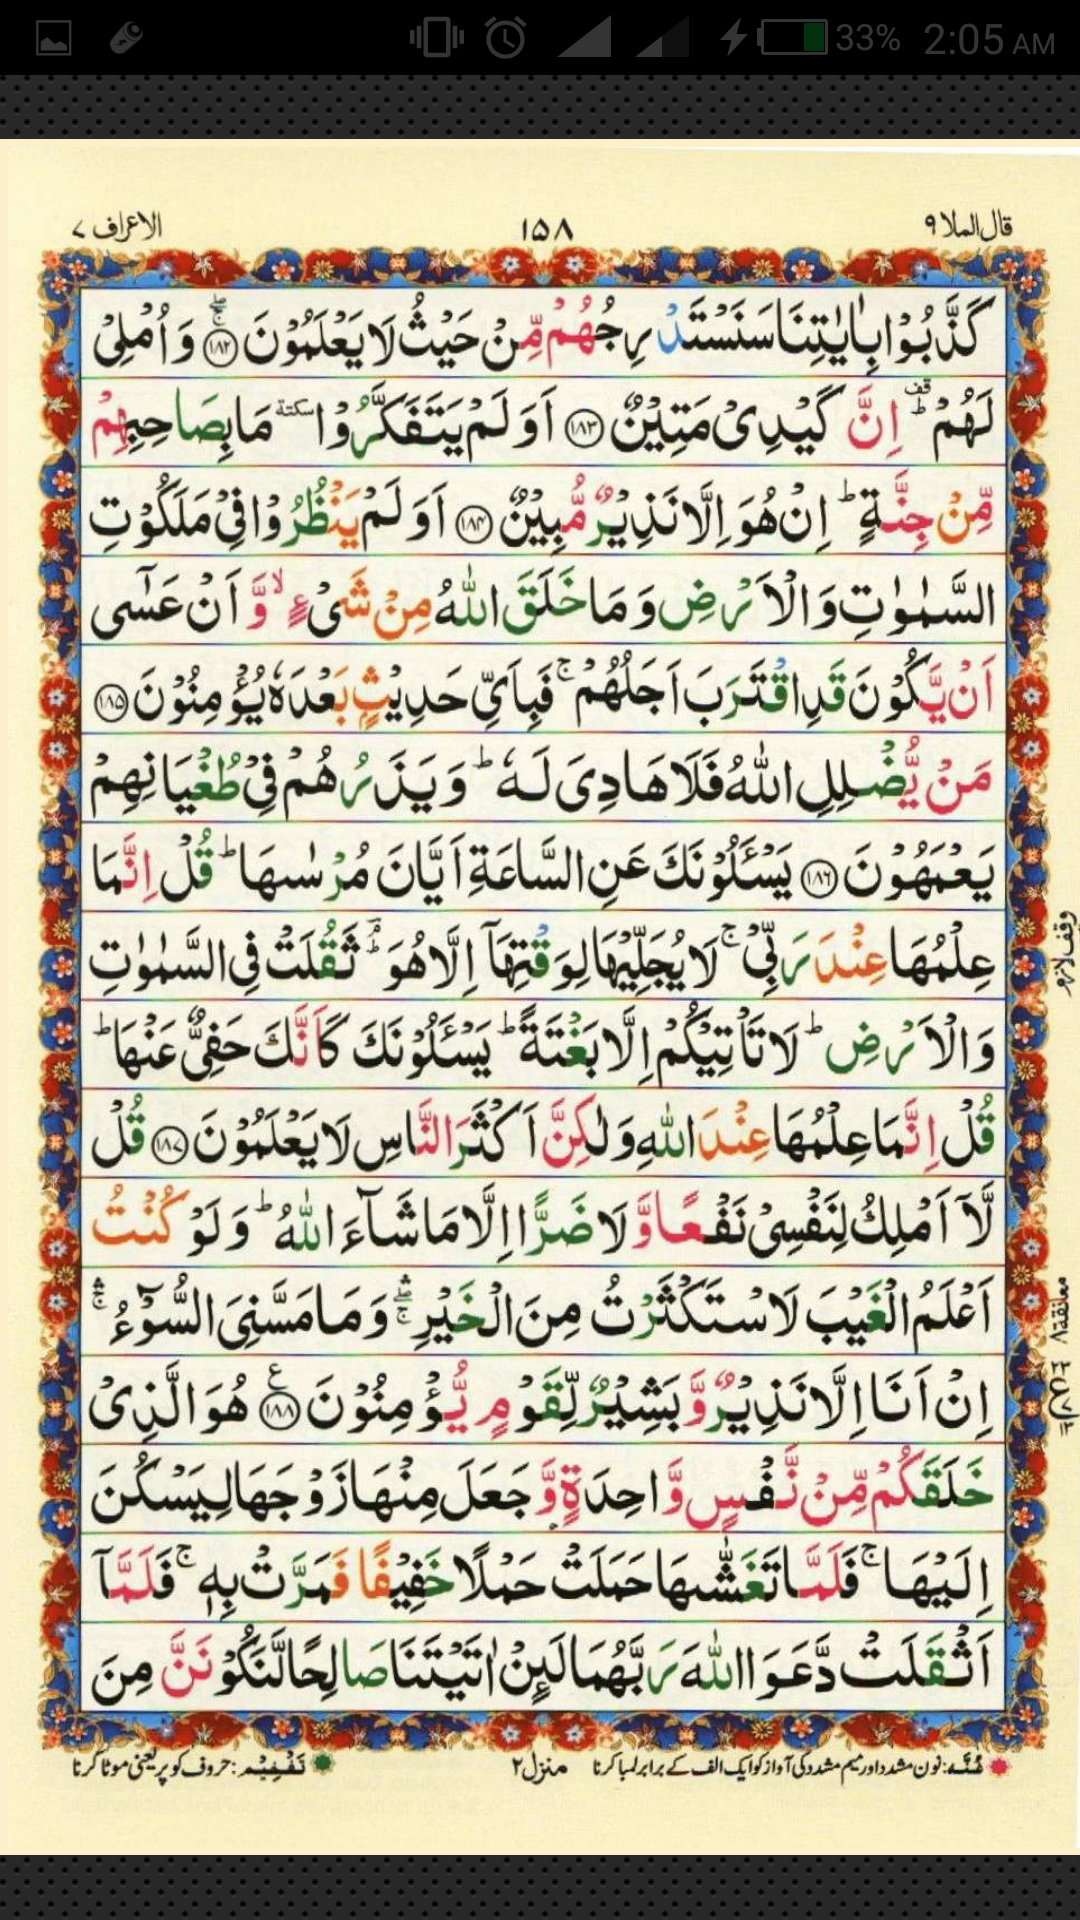 33% 2:05 AM
قال الملا ۹ ۱۵۸ الاعراف ۷
كَذَّبُوْا بِاٰيٰتِنَا سَنَسْتَدْرِجُهُمْ مِّنْ حَيْثُ لَا يَعْلَمُوْنَ ۚۖ ﴿۱۸۲﴾ وَ اُمْلِىْ
لَهُمْ ؕقف اِنَّ كَيْدِىْ مَتِيْنٌ ﴿۱۸۳﴾ اَوَ لَمْ يَتَفَكَّرُوْا سكتة مَا بِصَاحِبِهِمْ
مِّنْ جِنَّةٍ ؕ اِنْ هُوَ اِلَّا نَذِيْرٌ مُّبِيْنٌ ﴿۱۸۴﴾ اَوَ لَمْ يَنْظُرُوْا فِىْ مَلَكُوْتِ
السَّمٰوٰتِ وَ الْاَرْضِ وَ مَا خَلَقَ اللّٰهُ مِنْ شَىْءٍ ۙ وَّ اَنْ عَسٰٓى
اَنْ يَّكُوْنَ قَدِ اقْتَرَبَ اَجَلُهُمْ ۚ فَبِاَىِّ حَدِيْثٍۭ بَعْدَهٗ يُؤْمِنُوْنَ ﴿۱۸۵﴾
مَنْ يُّضْلِلِ اللّٰهُ فَلَا هَادِىَ لَهٗ ؕ وَ يَذَرُهُمْ فِىْ طُغْيَانِهِمْ
يَعْمَهُوْنَ ﴿۱۸۶﴾ يَسْـَٔلُوْنَكَ عَنِ السَّاعَةِ اَيَّانَ مُرْسٰىهَا ؕ قُلْ اِنَّمَا
عِلْمُهَا عِنْدَ رَبِّىْ ۚ لَا يُجَلِّيْهَا لِوَقْتِهَاۤ اِلَّا هُوَ ؔؕ ثَقُلَتْ فِى السَّمٰوٰتِ
وَ الْاَرْضِ ؕ لَا تَاْتِيْكُمْ اِلَّا بَغْتَةً ؕ يَسْـَٔلُوْنَكَ كَاَنَّكَ حَفِىٌّ عَنْهَا ؕ
قُلْ اِنَّمَا عِلْمُهَا عِنْدَ اللّٰهِ وَ لٰكِنَّ اَكْثَرَ النَّاسِ لَا يَعْلَمُوْنَ ﴿۱۸۷﴾ قُلْ
لَّاۤ اَمْلِكُ لِنَفْسِىْ نَفْعًا وَّ لَا ضَرًّا اِلَّا مَا شَآءَ اللّٰهُ ؕ وَ لَوْ كُنْتُ
اَعْلَمُ الْغَيْبَ لَاسْتَكْثَرْتُ مِنَ الْخَيْرِ ۛۚۖ وَ مَا مَسَّنِىَ السُّوْٓءُ ۛۚ
اِنْ اَنَا اِلَّا نَذِيْرٌ وَّ بَشِيْرٌ لِّقَوْمٍ يُّؤْمِنُوْنَ ﴿۱۸۸﴾ ع هُوَ الَّذِىْ
خَلَقَكُمْ مِّنْ نَّفْسٍ وَّاحِدَةٍ وَّ جَعَلَ مِنْهَا زَوْجَهَا لِيَسْكُنَ
اِلَيْهَا ۚ فَلَمَّا تَغَشّٰىهَا حَمَلَتْ حَمْلًا خَفِيْفًا فَمَرَّتْ بِهٖ ۚ فَلَمَّاۤ
اَثْقَلَتْ دَّعَوَا اللّٰهَ رَبَّهُمَا لَىِٕنْ اٰتَيْتَنَا صَالِحًا لَّنَكُوْنَنَّ مِنَ
وقف لازم
معانقة ۸
غُنَّه: نون مشدد اور میم مشدد کی آواز کو ایک الف کے برابر لمبا کرنا منزل ۲ تَفْخِیْم: حروف کو پُر یعنی موٹا کرنا